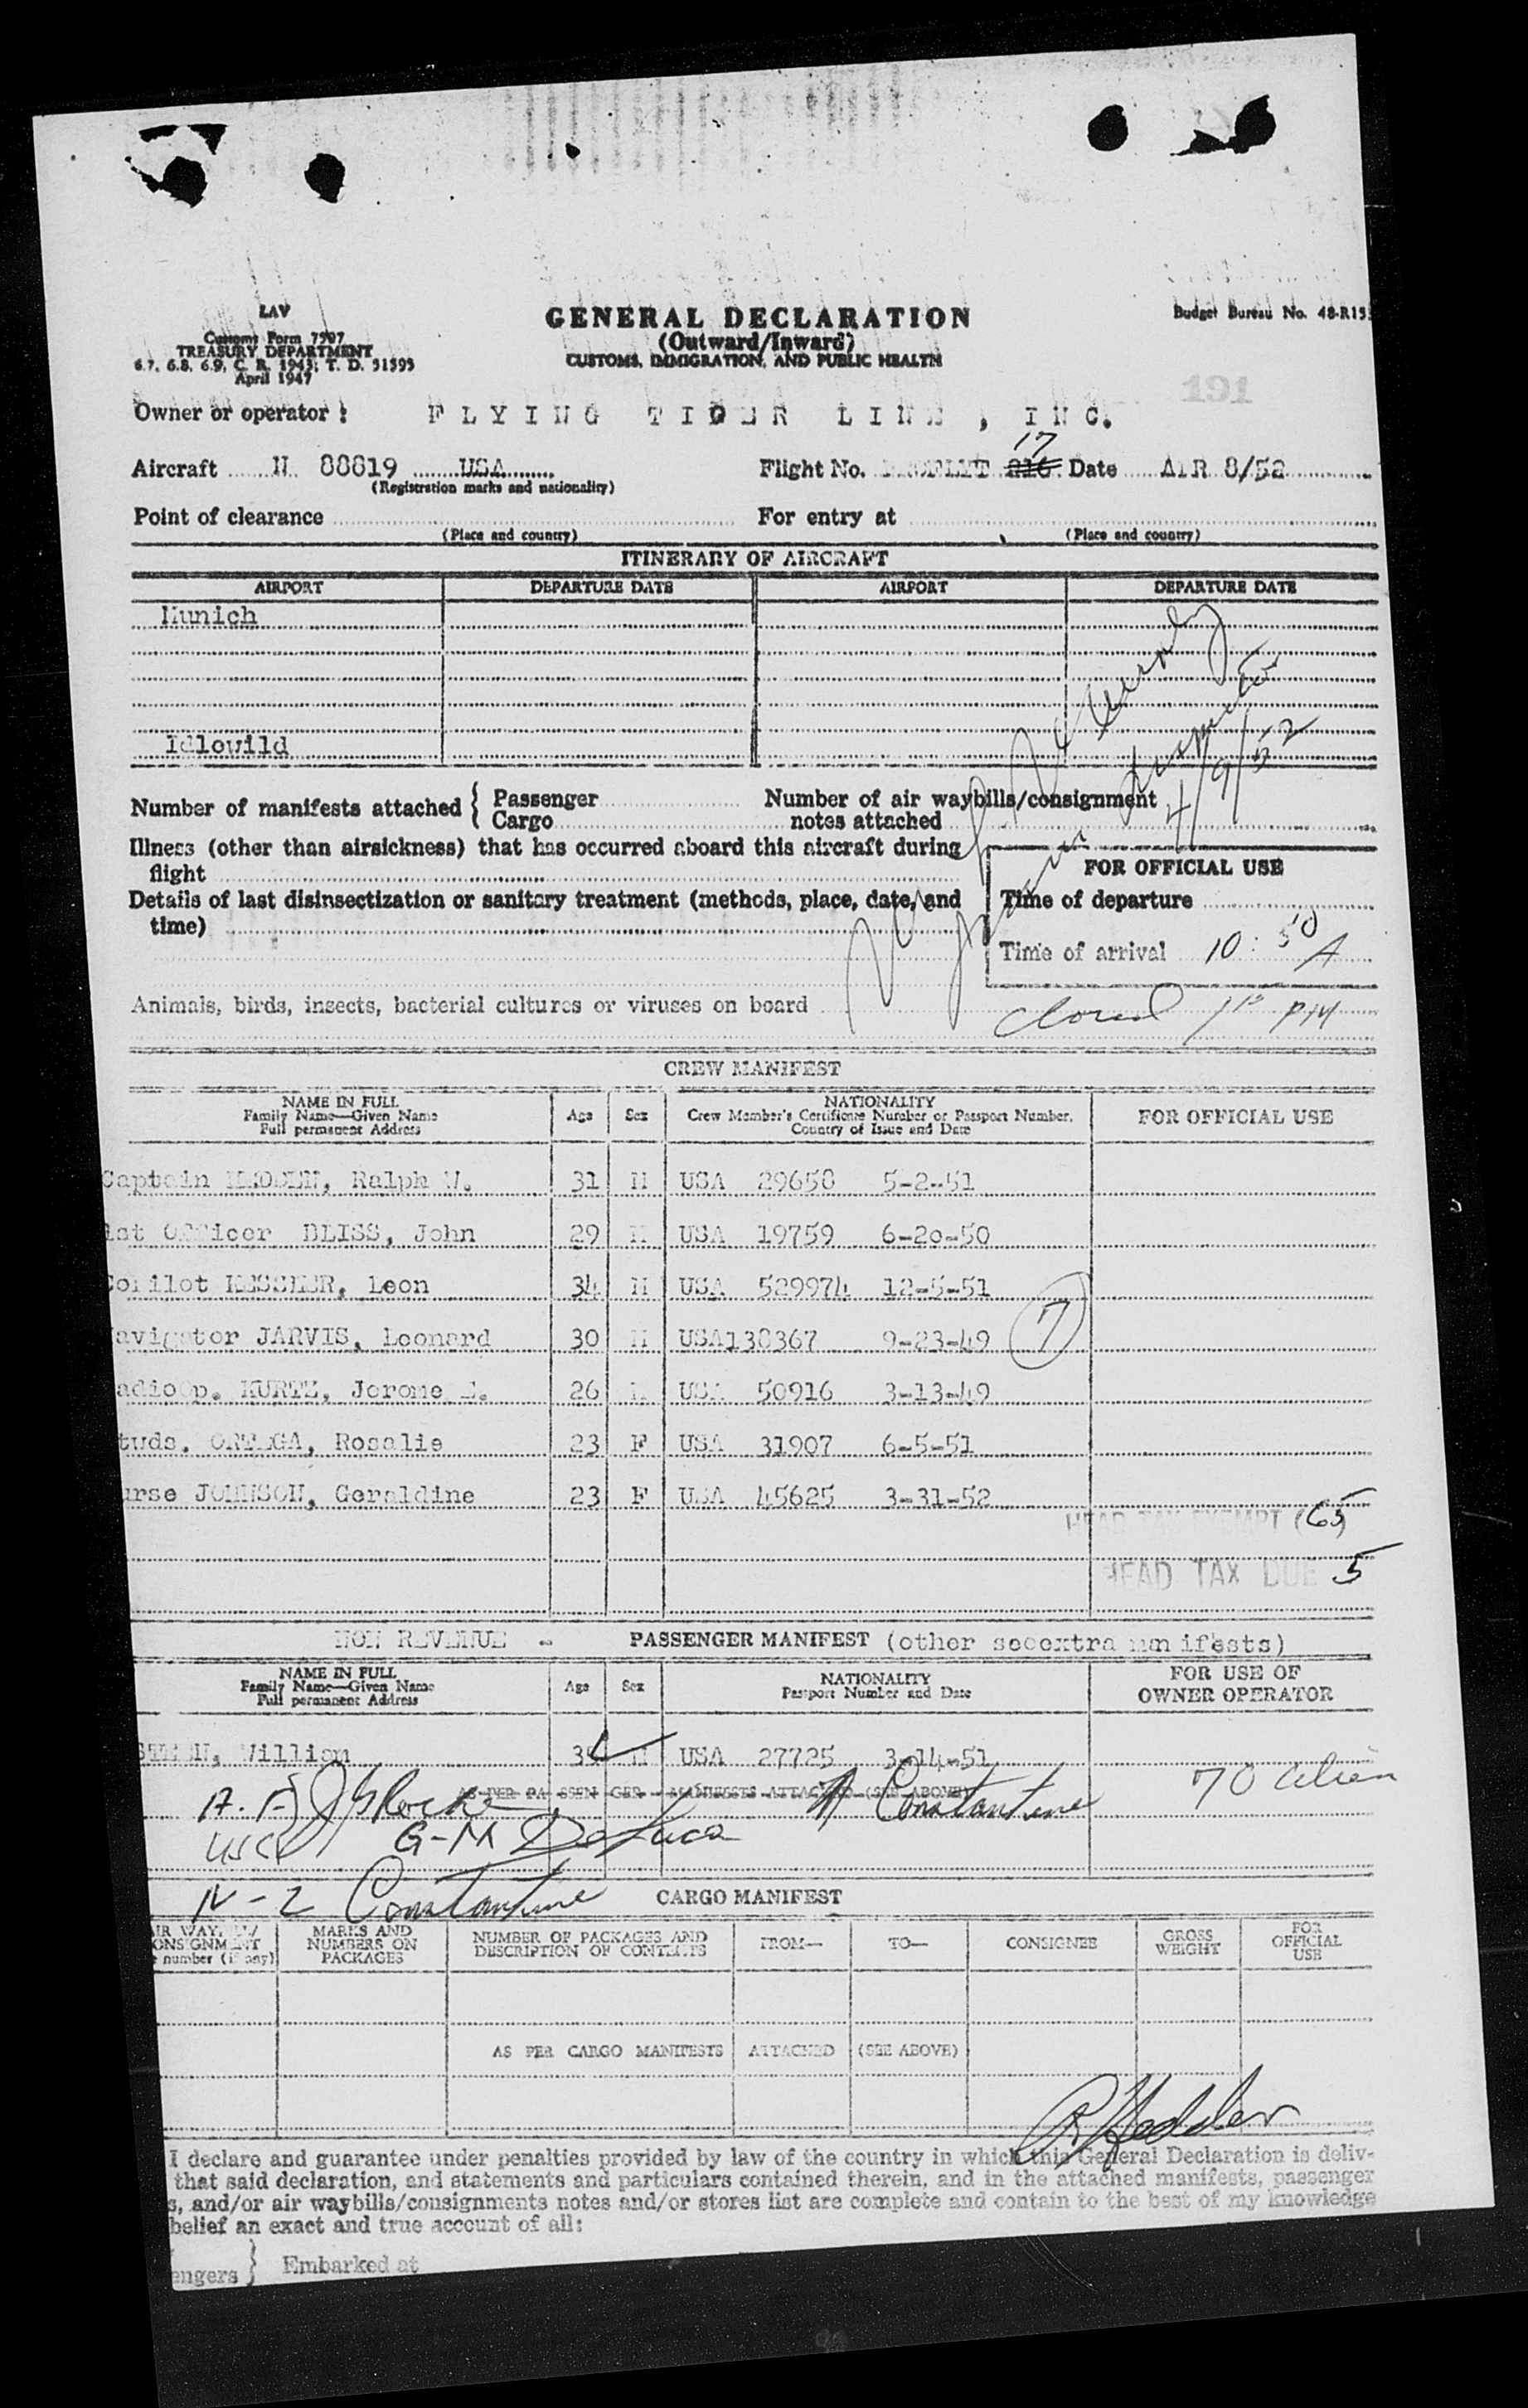 LAV
Customs Form 7507
TREASURY DEPARTMENT
6.7, 6.8, 6.9, C. R. 1943; T. D. 51595
April 1947
GENERAL DECLARATION
(Outward/Inward)
CUSTOMS, IMMIGRATION, AND PUBLIC HEALTH
Budget Bureau No. 48-R15
191
Owner or operator : FLYING TIGER LINE, INC.
17
Aircraft N 88819 USA Flight No. 216 Date APR 8/52
(Registration marks and nationality)
Point of clearance For entry at
(Place and country) (Place and country)
ITINERARY OF AIRCRAFT
AIRPORT DEPARTURE DATE AIRPORT DEPARTURE DATE
Munich
Idlewild
Inspector
4/9/52
Number of manifests attached { Passenger Number of air waybills/consignment
Cargo notes attached
Illness (other than airsickness) that has occurred aboard this aircraft during
flight
FOR OFFICIAL USE
Details of last disinsectization or sanitary treatment (methods, place, date, and
time)
Time of departure
Time of arrival 10:50 A
Animals, birds, insects, bacterial cultures or viruses on board
closed 1 PM
CREW MANIFEST
NAME IN FULL Age Sex NATIONALITY FOR OFFICIAL USE
Family Name—Given Name Crew Member's Certificate Number or Passport Number,
Full permanent Address Country of Issue and Date
Captain HEDDEN, Ralph W. 31 M USA 29658 5-2-51
1st Officer BLISS, John 29 M USA 19759 6-20-50
CoPilot Leon 34 M USA 529974 12-5-51
avigator JARVIS, Leonard 30 M USA 130367 9-23-49
7
adioop. KURTZ, Jerome E. 26 M USA 50916 3-13-49
tuds. ORTEGA, Rosalie 23 F USA 31907 6-5-51
urse JOHNSON, Geraldine 23 F USA 45625 3-31-52
HEAD TAX EXEMPT (65)
HEAD TAX DUE 5
NON REVENUE - PASSENGER MANIFEST (other seeextra man ifests)
NAME IN FULL Age Sex NATIONALITY FOR USE OF
Family Name—Given Name Passport Number and Date OWNER OPERATOR
Full permanent Address
William M USA 27725 3-14-51
AS PER PA SSEN GER MANIFESTS ATTACHED (SEE ABOVE)
Constantine
70 alien
G-M DeLuca
IV-2 Constantine
CARGO MANIFEST
IR WAYBILL/
ONSIGNMENT
number (if any) MARKS AND
NUMBERS ON
PACKAGES NUMBER OF PACKAGES AND
DESCRIPTION OF CONTENTS FROM— TO— CONSIGNEE GROSS
WEIGHT FOR
OFFICIAL
USE
AS PER CARGO MANIFESTS ATTACHED (SEE ABOVE)
R Hedden
I declare and guarantee under penalties provided by law of the country in which this General Declaration is deliv-
that said declaration, and statements and particulars contained therein, and in the attached manifests, passenger
s, and/or air waybills/consignments notes and/or stores list are complete and contain to the best of my knowledge
belief an exact and true account of all:
engers } Embarked at